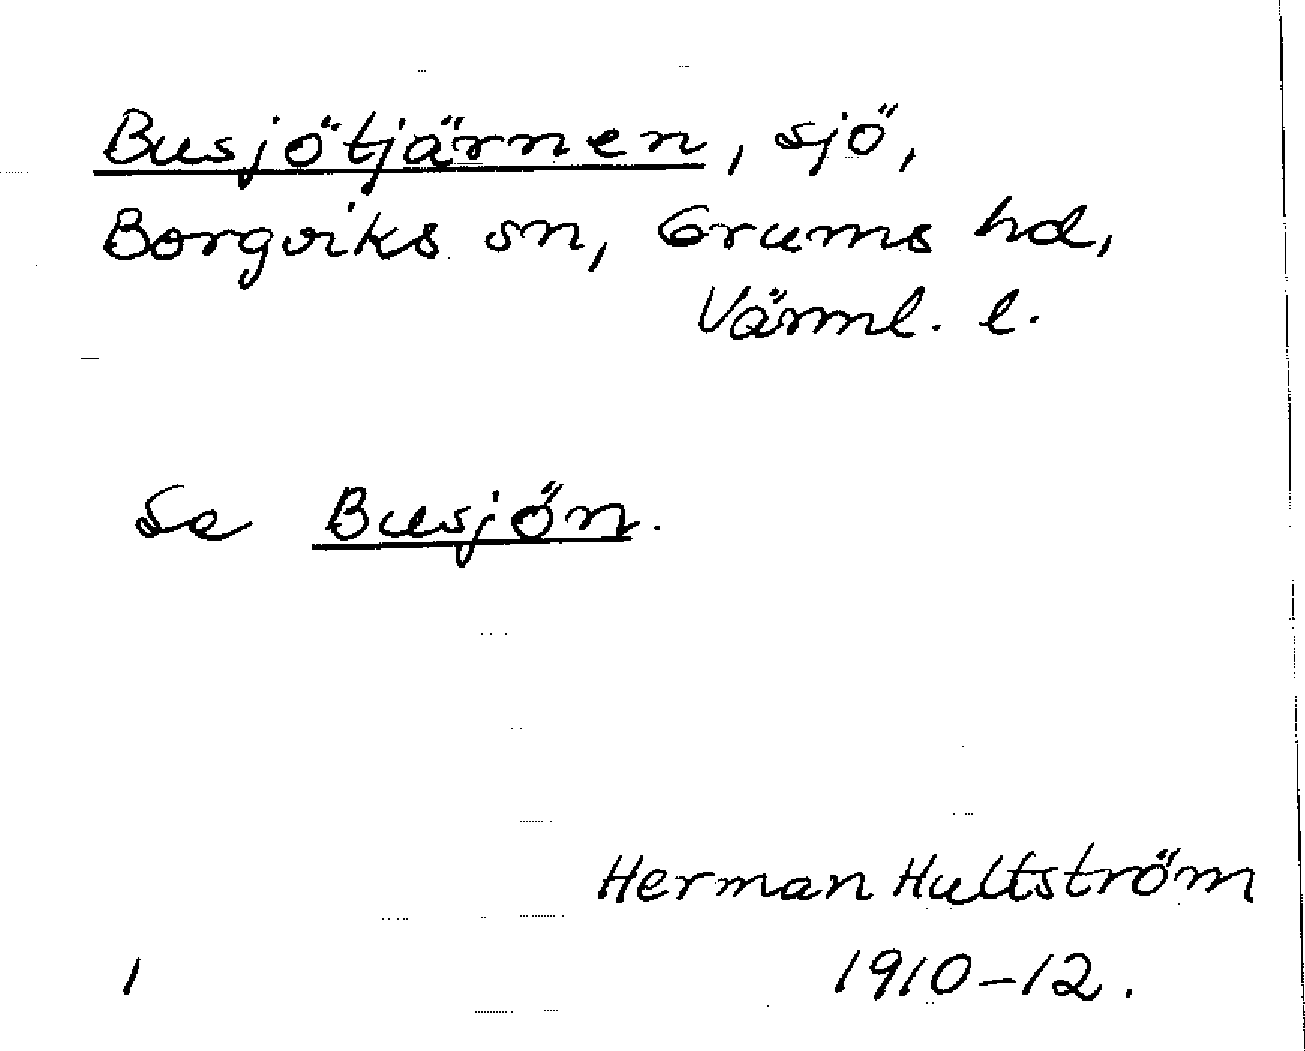 Busjötjärnen, sjö,
Borgviks sn, Grums hd,
Värml. l.
Se Busjön.
Herman Hultström
1910-12.
1